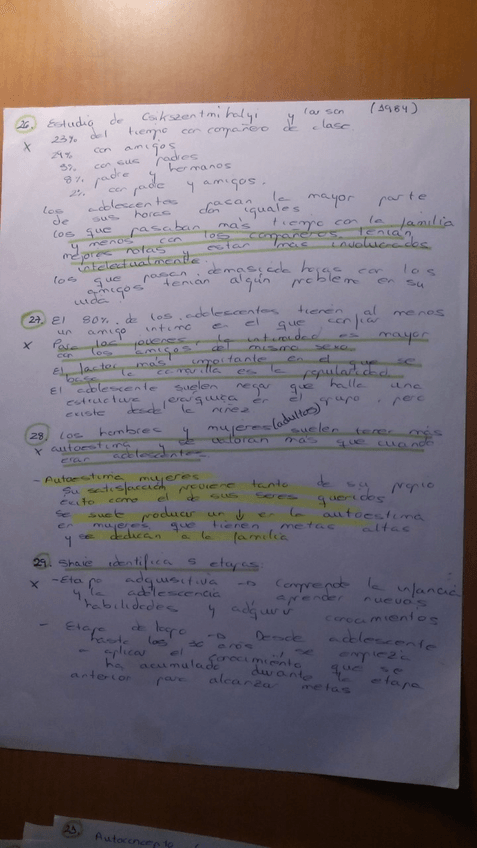 26. Estudio de Csikszentmihalyi y Larson (1984)
x 23% del tiempo con compañero de clase
29% con amigos
5% con sus padres
8% padre y hermanos
2% con padre y amigos.
Los adolescentes pasan la mayor parte
de sus horas con iguales
Los que pasaban más tiempo con la familia
y menos con los compañeros tenían
mejores notas y estar más involucrados
intelectualmente
Los que pasan demasiada horas con los
amigos tenían algún problema en su
vida
27. El 80% de los adolescentes tienen al menos
un amigo íntimo en el que confiar
x Para los jóvenes, la intimidad es mayor
con los amigos del mismo sexo.
El factor más importante en el que se
basa la camarilla es la popularidad
El adolescente suelen negar que halla una
estructura jerarquica en el grupo, pero
existe desde la niñez
28. Los hombres y mujeres (adultos) suelen tener más
x autoestima y se valoran más que cuando
eran adolescentes.
- Autoestima mujeres
Su satisfacción proviene tanto de su propio
éxito como el de sus seres queridos
Se suele producir un ↓ en la autoestima
en mujeres que tienen metas altas
y se dedican a la familia
29. Shaie identifica 5 etapas:
x - Etapa adquisitiva → Comprende la infancia
y la adolescencia aprender nuevos
habilidades y adquirir conocimientos
- Etapa de logro → Desde adolescente
hasta los 30 años, se empieza
a aplicar el conocimiento que se
ha acumulado durante la etapa
anterior para alcanzar metas
23. Autoconcepto